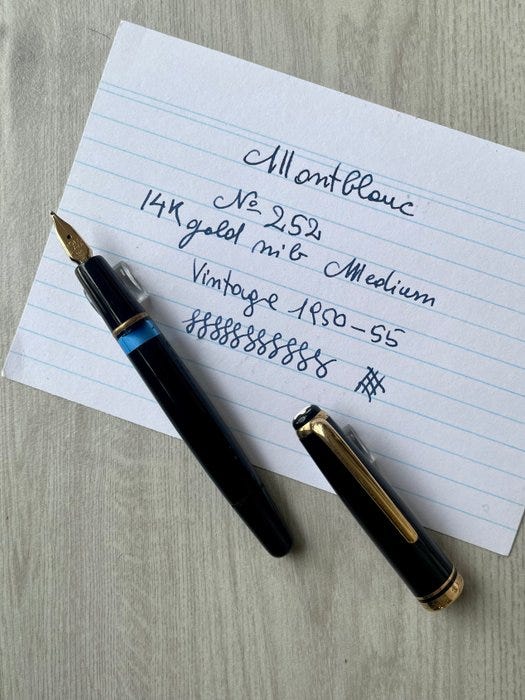 Montblanc
№ 252
14K gold nib Medium
Vintage 1950-55